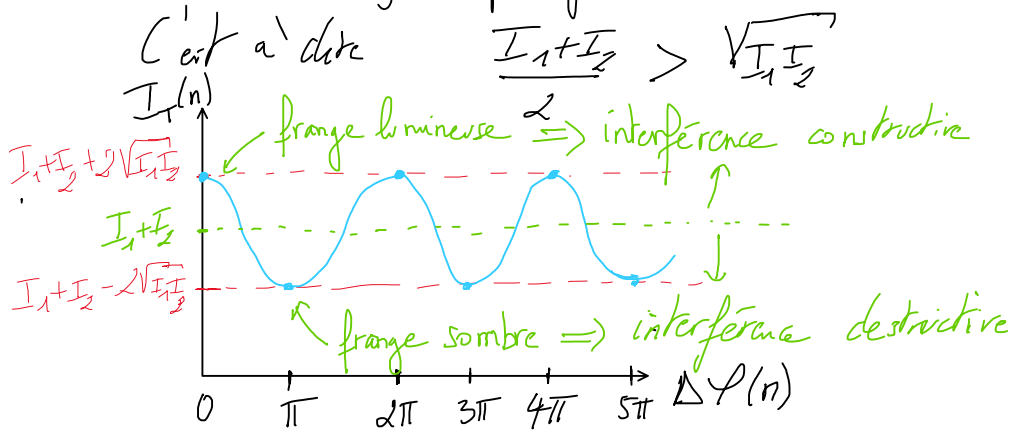 C'est à dire (I₁+I₂)/2 > √(I₁I₂)
I_T(n)
frange lumineuse => interférence constructive
I₁+I₂+2√(I₁I₂)
I₁+I₂
I₁+I₂-2√(I₁I₂)
frange sombre => interférence destructive
0 π 2π 3π 4π 5π Δφ(n)